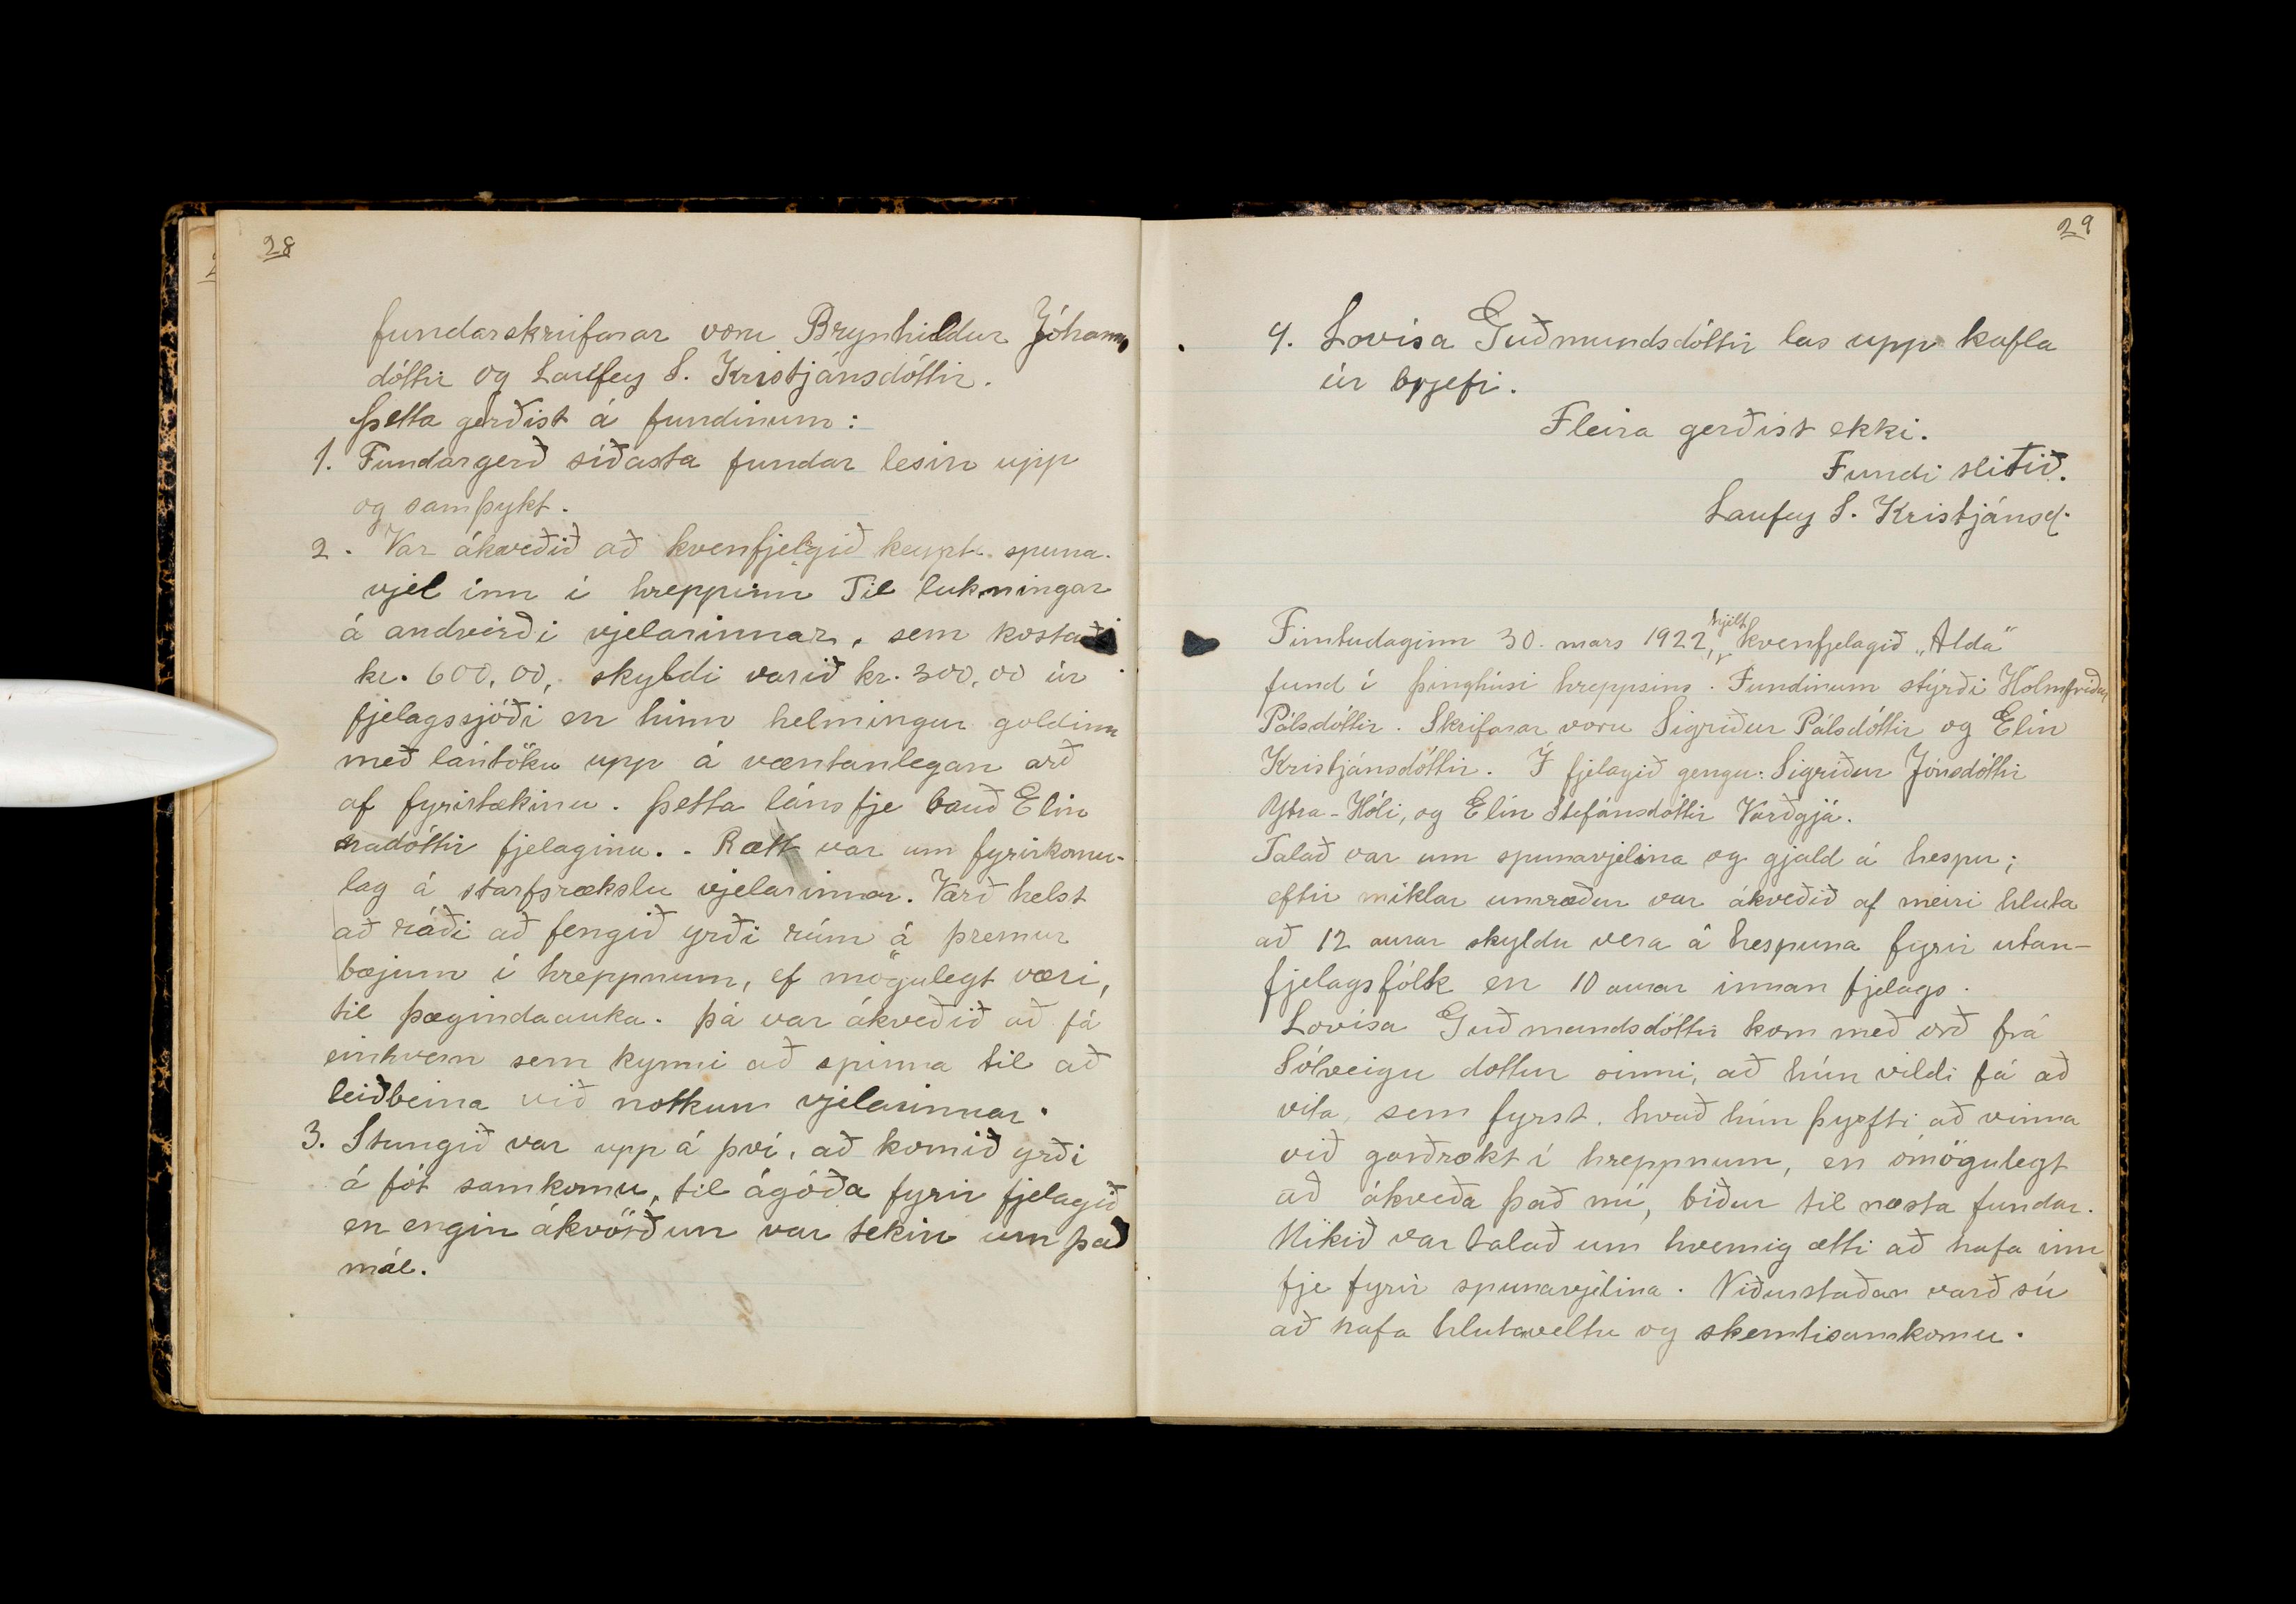 28
fundarskrifarar voru Brynhildur Jóhanns
dóttir og Laufey S. Kristjánsdóttir.
Þetta gerðist á fundinum:
1. Fundargerð síðasta fundar lesin upp
og samþykt.
2. Var ákveðið að kvenfjelgið keypti spuna-
vjel inn í hreppinn Til lukningar
á andvirði vjelarinnar, sem kostaði
kr. 600,00, skyldi varið kr. 300,00 úr
fjelagssjóði en hinn helmingur goldinn
með lántöku upp á væntanlegan arð
af fyrirtækinu. Þetta láns fje bauð Elin
dóttir fjelaginu. - Rætt var um fyrirkomu-
lag á starfsrækslu vjelarinnar. Varð helst
að ráði að fengið yrði rúm á þremur
bæjum í hreppnum, ef mögulegt væri,
til þægindaauka. Þá var ákveðið að fá
einhvern sem kynni að spinna til að
leiðbeina við notkun vjelarinnar.
3. Stungið var upp á því, að komið yrði
á fót samkomu, til ágóða fyrir fjelagið
en engin ákvörðun var tekin um það
mál.
29
4. Lovísa Guðmundsdóttir las upp kafla
úr brjefi.
Fleira gerðist ekki.
Fundi slitið.
Laufey S. Kristjánsd.
Fimtudaginn 30. mars 1922, hjelt kvenfjelagið „Alda"
fund í þinghúsi hreppsins. Fundinum stýrði Hólmfríður
Pálsdóttir. Skrifarar voru Sigríður Pálsdóttir og Elín
Kristjánsdóttir. Í fjelagið gengu: Sigríður Jónsdóttir
Ytra-Hóli, og Elín Stefánsdóttir Varðgjá.
Talað var um spunavjelina og gjald á hespu;
eftir miklar umræður var ákveðið af meiri hluta
að 12 aurar skyldu vera á hespuna fyrir utan-
fjelagsfólk en 10 aurar innan fjelags.
Lovísa Guðmundsdóttir kom með orð frá
Sólveigu dóttur sinni, að hún vildi fá að
vita, sem fyrst, hvað hún þyrfti að vinna
við garðrækt í hreppnum, en ómögulegt
að ákveða það nú, bíður til næsta fundar.
Mikið var talað um hvernig ætti að hafa inn
fje fyrir spunavjelina. Niðurstaðan varð sú
að hafa hlutaveltu og skemtisamkomu.